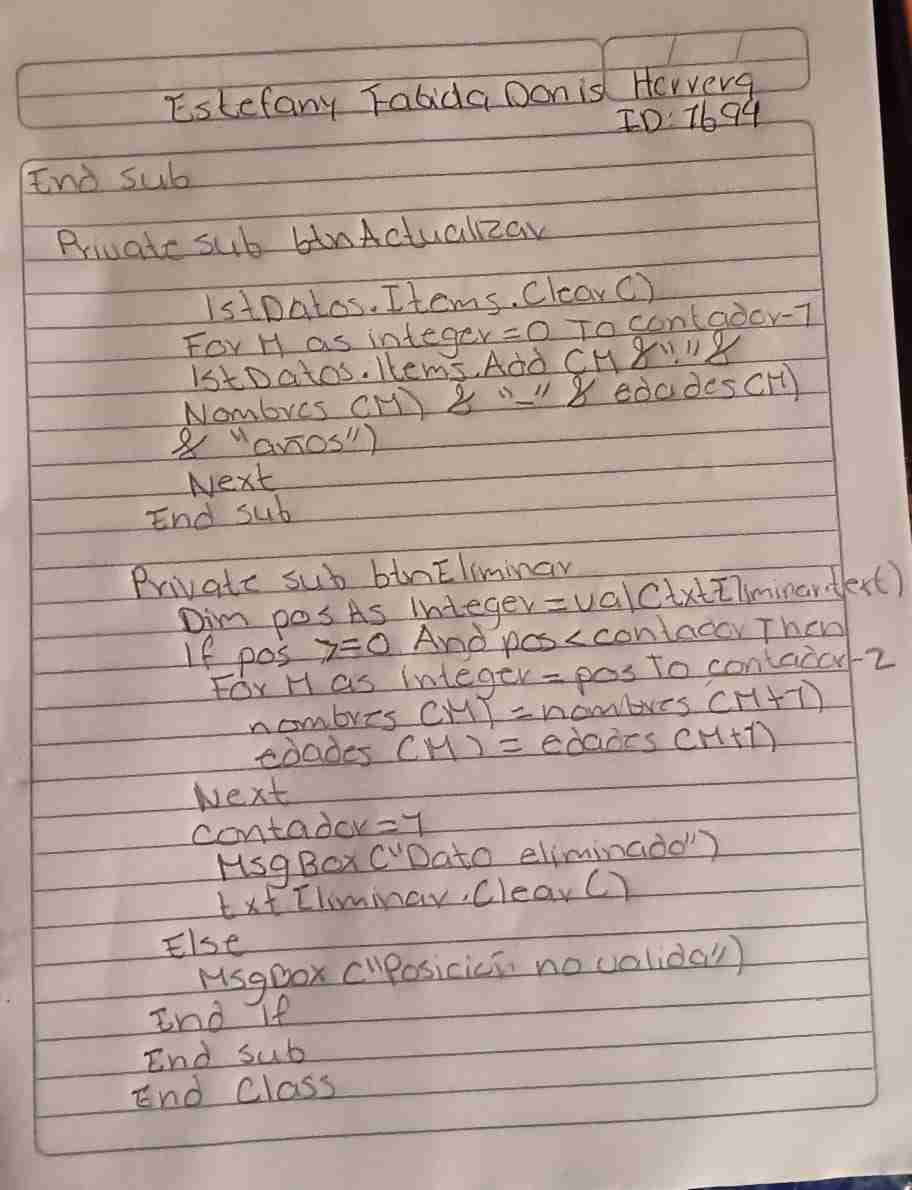 Estefany Fabida Donis Herrera
ID: 1694
End sub
Private sub btnActualizar
lstDatos.Items.Clear()
For M as integer=0 To contador-1
lstDatos.Items.Add (M & "." &
Nombres (M) & "-" & edades(M)
& "años")
Next
End sub
Private sub btnEliminar
Dim pos As Integer=val(txtEliminar.text)
If pos >=0 And pos<contador Then
For M as integer=pos To contador-2
nombres (M) = nombres (M+1)
edades (M) = edades (M+1)
Next
contador=1
MsgBox("Dato eliminado")
txtEliminar.Clear()
Else
MsgBox ("Posición no valida")
End if
End sub
End Class